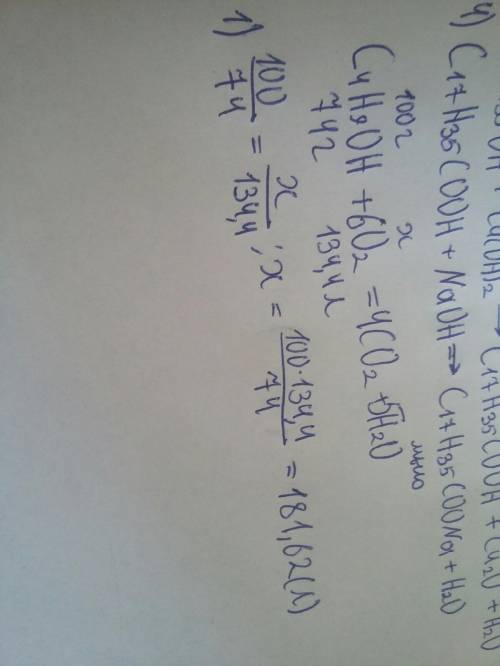 OH Cu(OH)₂ → C₁₇H₃₅COOH + Cu₂O + H₂O
4) C₁₇H₃₅COOH + NaOH → C₁₇H₃₅COONa + H₂O
мыло
100г x
C₄H₉OH + 6O₂ = 4CO₂ + 5H₂O
74г 134,4л
1) 100/74 = x/134,4 ; x = 100·134,4/74 = 181,62(л)